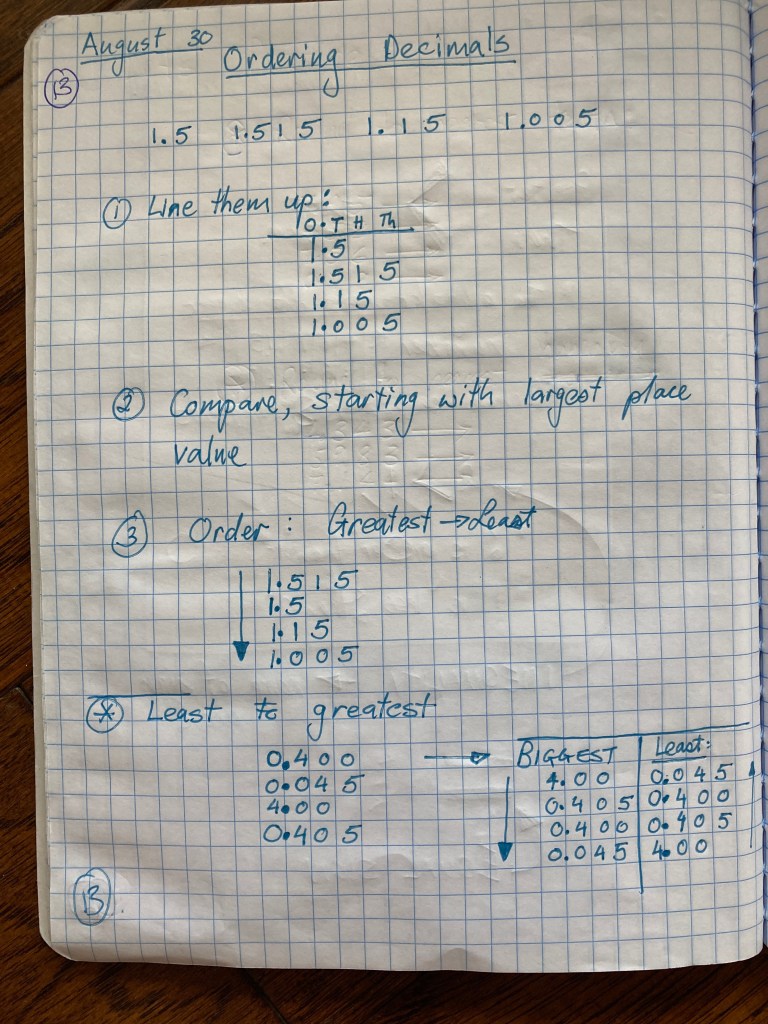 August 30
Ordering Decimals
13
1.5 1.515 1.15 1.005
① Line them up:
O.T H Th
1.5
1.515
1.15
1.005
② Compare, starting with largest place
value
③ Order: Greatest → Least
1.515
1.5
1.15
1.005
* Least to greatest
0.400
0.045
4.00
0.405
→ BIGGEST Least:
4.00 0.045
0.405 0.400
0.400 0.405
0.045 4.00
13